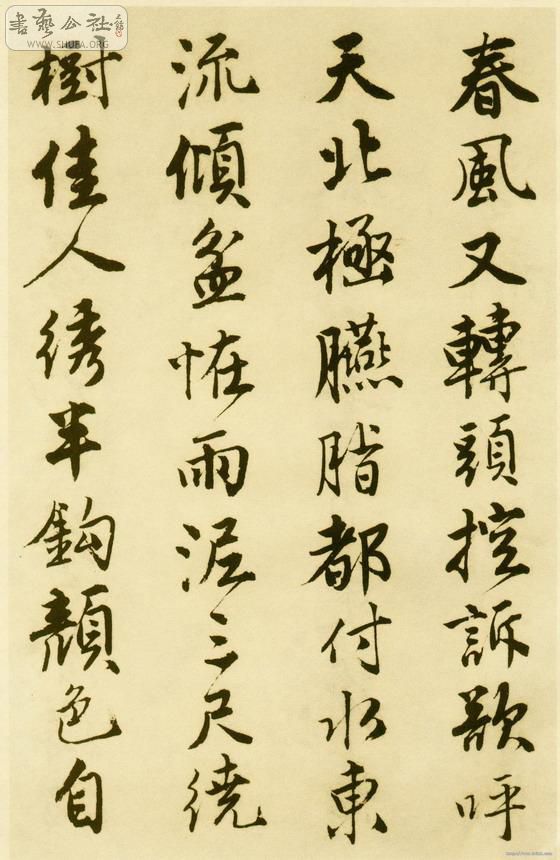 春風又轉頭控訴欲呼
天北極臙脂都付水東
流傾盆怪雨泥三尺繞
樹佳人綉半鈎顏色自
書藝公社
WWW.SHUFA.ORG